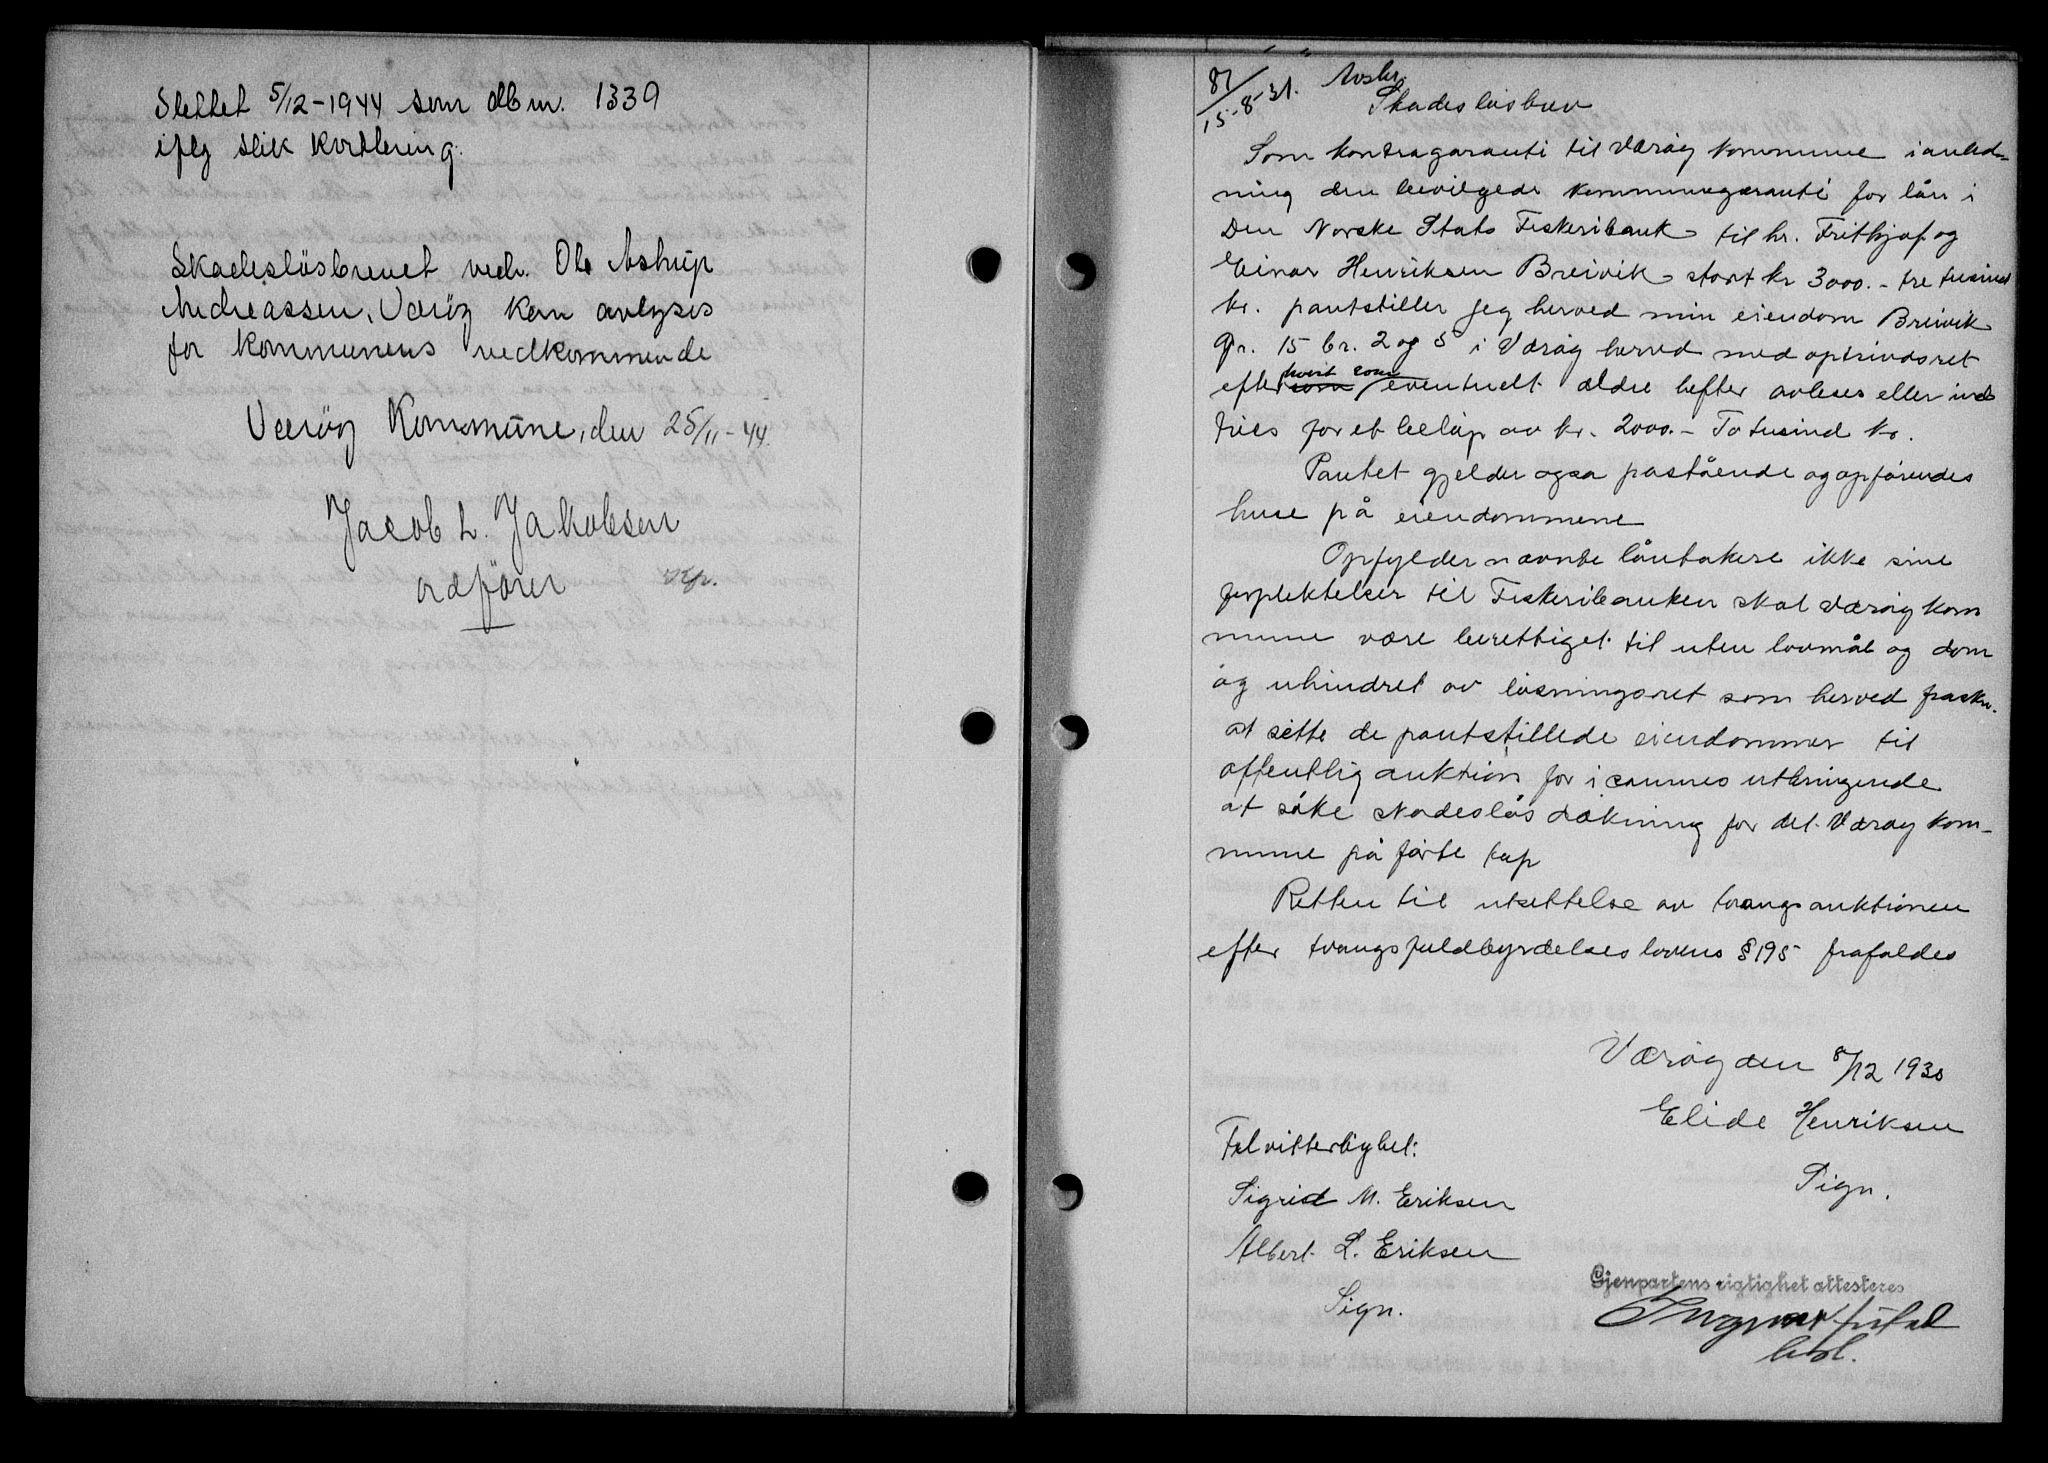 Slettet 5/12-1944 som dbnr. 1339
iflg slik kvittering:
Skadesløsbrevet vedr. Ole Astrup
Andreassen, Værøy kan avlyses
for kommunens vedkommende
Værøy Kommune, den 25/11-44
Jacob L. Jakobsen
ordfører
87/15-8-31. Avskr.
Skadesløsbrev
Som kontragaranti til Værøy kommune i anled-
ning den bevilgede kommunegaranti for lån i
Den Norske Stats Fiskeribank til hr. Frithjof og
Einar Henriksen Breivik stort kr 3000.- tre tusind
kr. pantstiller jeg herved min eiendom Breivik
Gr. 15 br. 2 og 5 i Værøy herred med optrinsret
efter hvert som eventuelt ældre hefter avleses eller ind
fries for et beløp av kr. 2000.- To tusind kr.
Pantet gjelder også påstående og opførendes
huse på eiendommene
Opfylder nævnte låntakere ikke sine
forpliktelser til Fiskeribanken skal Værøy kom
mune være berettiget til uten lovmål og dom
og uhindret av løsningsret som herved fraskr.
at sette de pantstillede eiendommer til
offentlig auktion for i sammes utbringende
at søke skadesløs dækning for det Værøy kom-
mune på førte tap
Retten til utsettelse av tvangsauktionen
efter tvangsfuldbyrdelseslovens § 195 frafaldes
Værøy den 8/12 1930
Elide Henriksen
Sign.
Til vitterlighet:
Sigrid M. Eriksen
Albert L. Eriksen
Sign.
Gjenpartens rigtighet attesteres